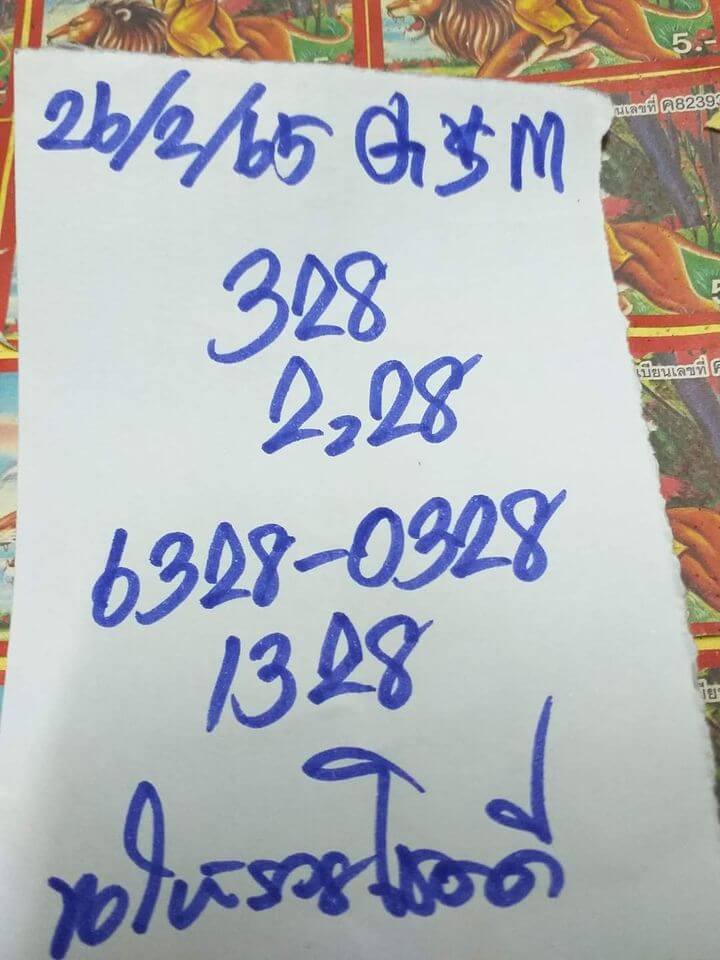 5.-
ยนเลขที่ ค82393
26/2/65
328
2,28
เบียนเลขที่ ค
6328-0328
1328
ขอให้รวยโชคดี